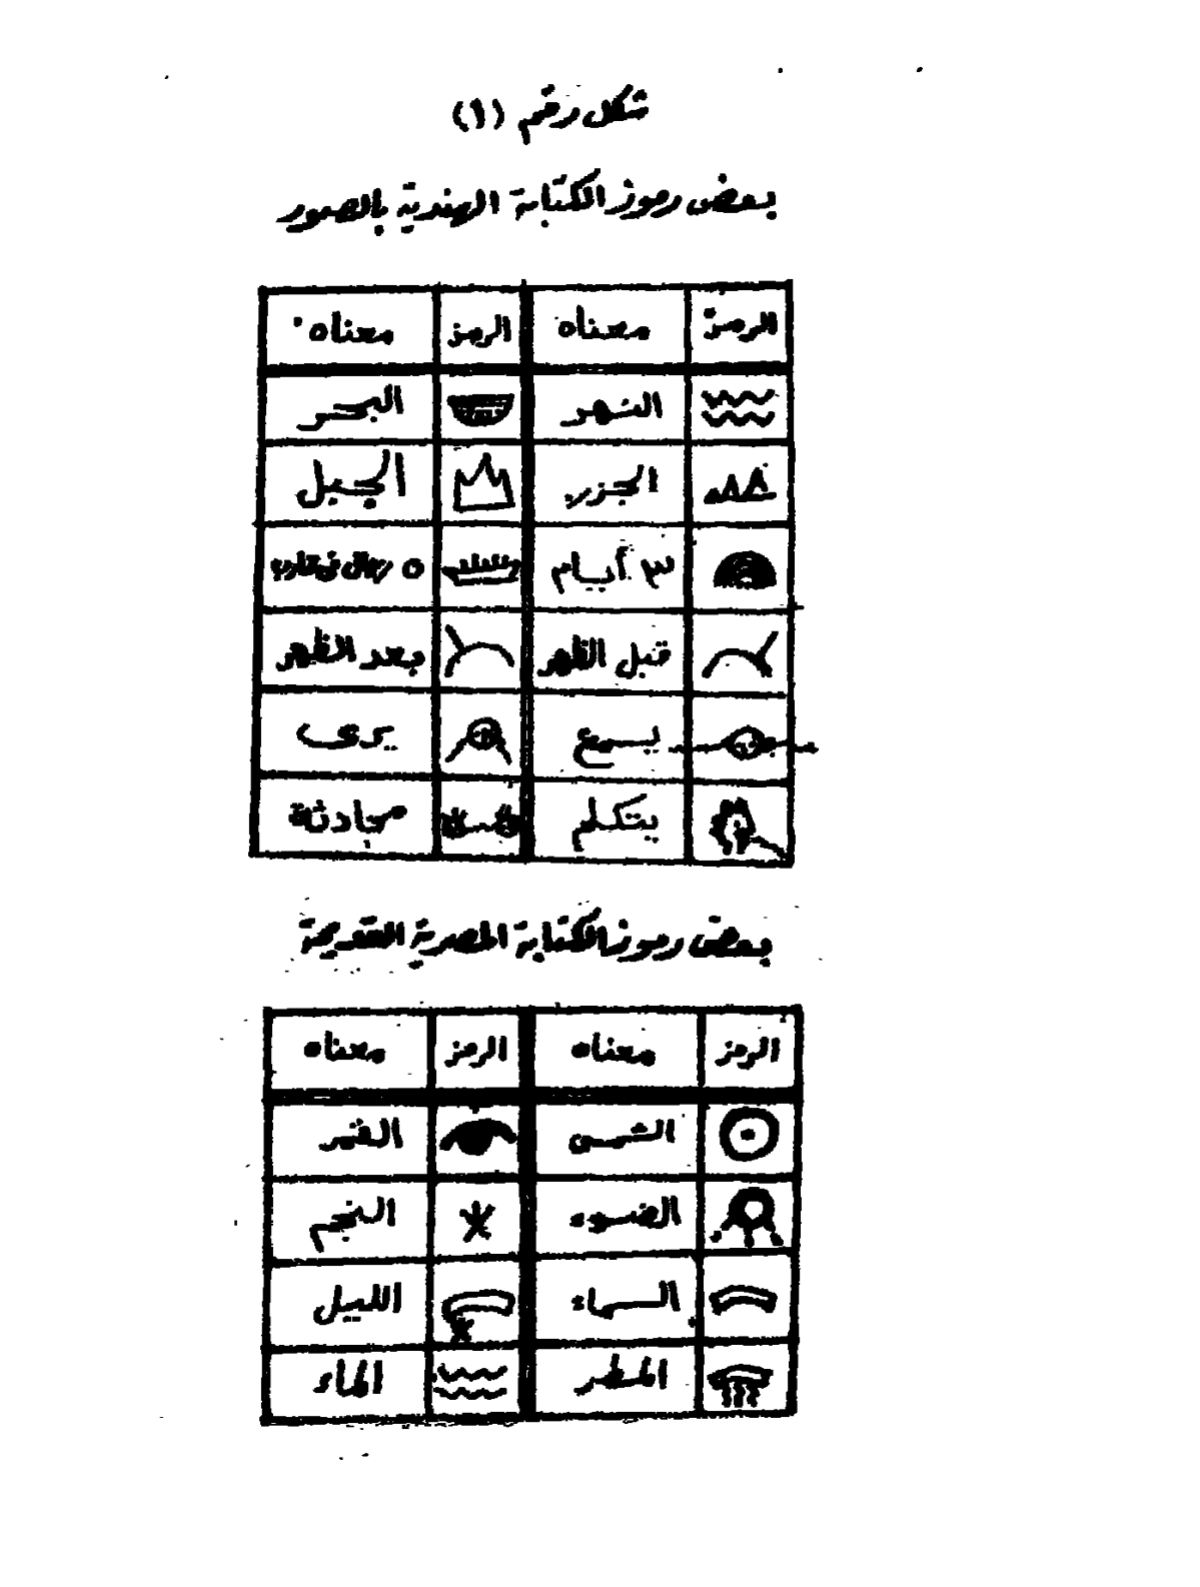 شكل رقم (١)
بعض رموز الكتابة الهندية بالصور
الرمز معناه الرمز معناه
النهر البحر
الجزر الجبل
٣ أيام ٥ رجال فى قارب
قبل الظهر بعد الظهر
يسمع يرى
يتكلم محادثة
بعض رموز الكتابة المصرية القديمة
الرمز معناه الرمز معناه
الشمس القمر
الضوء النجم
السماء الليل
المطر الماء